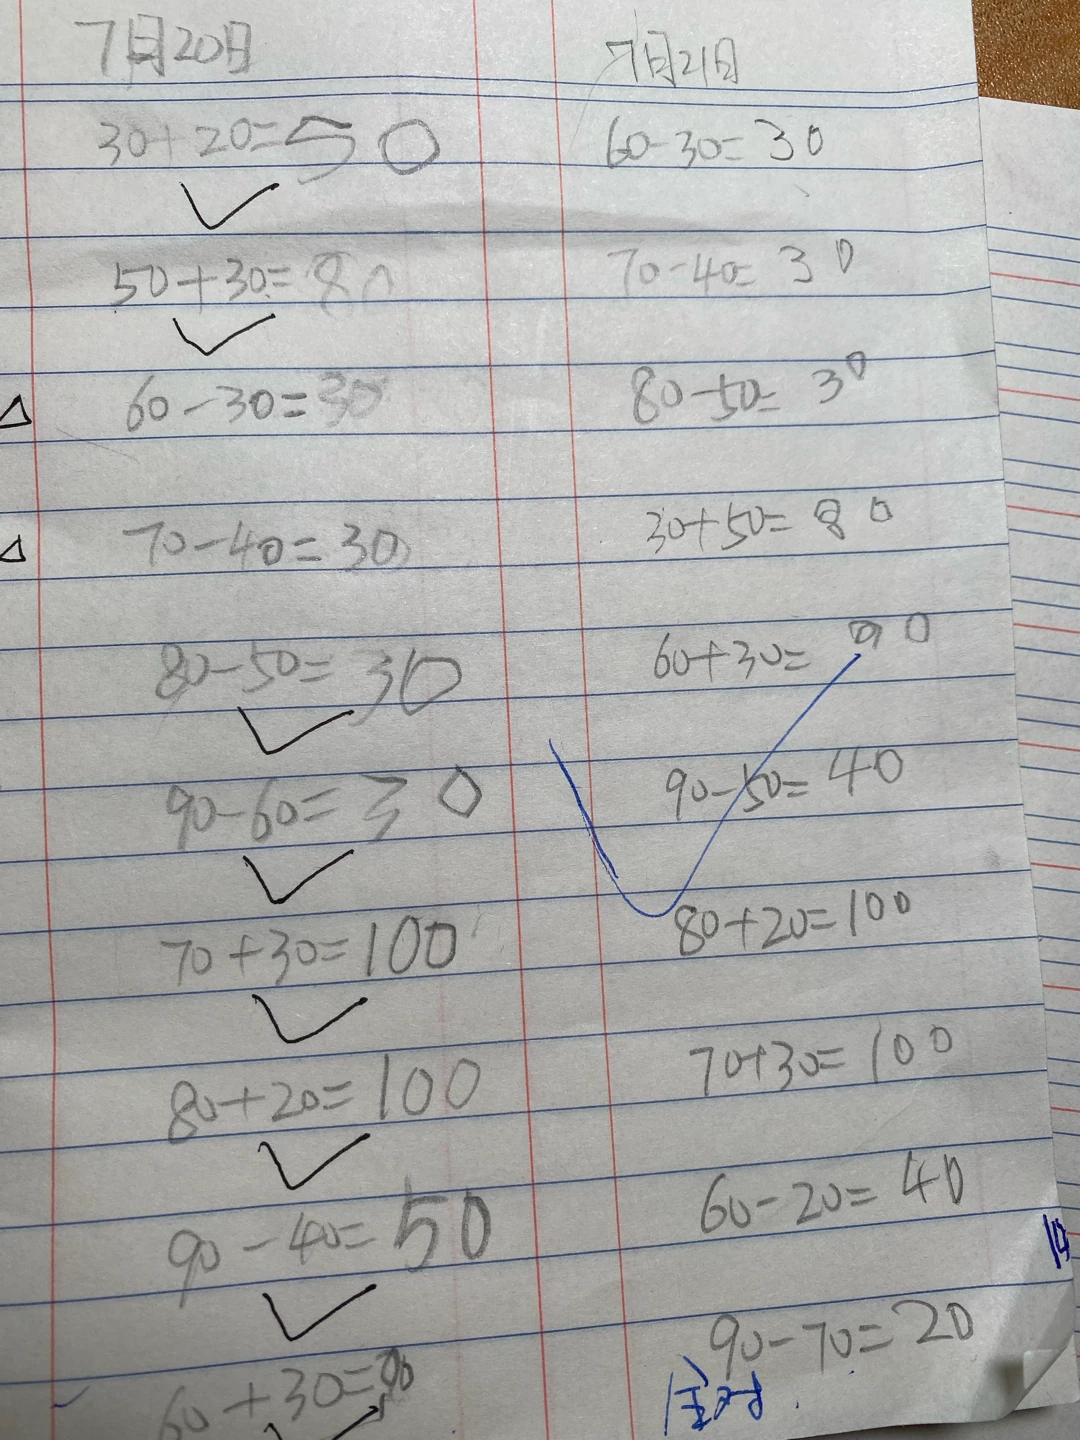 7月20日
30+20=50
50+30=80
60-30=30
70-40=30
80-50=30
90-60=30
70+30=100
80+20=100
90-40=50
60+30=90
7月21日
60-30=30
70-40=30
80-50=30
30+50=80
60+30=90
90-50=40
80+20=100
70+30=100
60-20=40
90-70=20
全对.